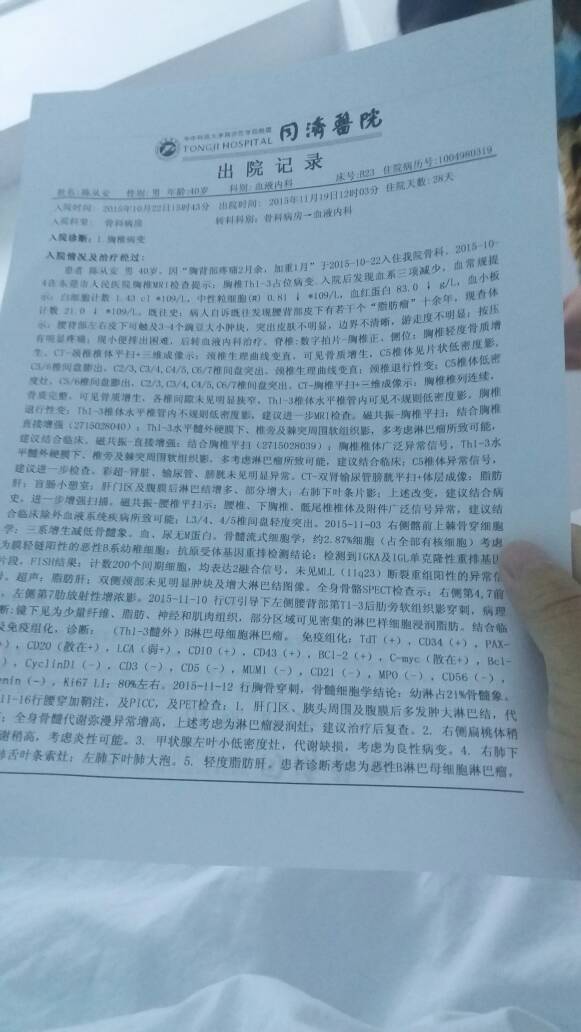 华中科技大学同济医学院附属
TONGJI HOSPITAL 同濟醫院
出院记录
姓名:陈从安 性别:男 年龄:40岁 科别:血液内科 床号:B23 住院病历号:1004980319
入院时间: 2015年10月22日15时43分 出院时间: 2015年11月19日12时03分 住院天数: 28天
入院科室: 骨科病房 转科科别: 骨科病房→血液内科
入院诊断: 1.胸椎病变
入院情况及治疗经过:
患者 陈从安 男 40岁, 因“胸背部疼痛2月余, 加重1月”于2015-10-22入住我院骨科。2015-10-
4在东莞市人民医院胸椎MRI检查提示: 胸椎Th1-3占位病变。入院后发现血系三项减少, 血常规提
示: 白细胞计数 1.43 cl *109/L, 中性粒细胞(#) 0.81 ↓ *109/L, 血红蛋白 83.0 ↓ g/L, 血小板
计数 21.0 ↓ *109/L。既往史: 病人自诉既往发现腰背部皮下有若干个“脂肪瘤”十余年, 现查体
示: 腰背部左右皮下可触及3-4个豌豆大小肿块, 突出皮肤不明显, 边界不清晰, 游走度不明显; 按压
有明显疼痛; 现小便排出困难。后转血液内科治疗。脊椎:数字拍片-胸椎正、侧位: 胸椎轻度骨质增
生。CT-颈椎椎体平扫+三维成像示: 颈椎生理曲线变直, 可见骨质增生, C5椎体见片状低密度影,
C5/6椎间盘膨出, C2/3, C3/4, C4/5, C6/7椎间盘突出。颈椎生理曲线变直; 颈椎退行性变; C5椎体低密
度灶, C5/6椎间盘膨出, C2/3, C3/4, C4/5, C6/7椎间盘突出。CT-胸椎平扫+三维成像示: 胸椎椎列连续,
骨质完整, 可见骨质增生, 各椎间隙未见明显狭窄, Th1-3椎体水平椎管内可见不规则低密度影。胸椎
退行性变; Th1-3椎体水平椎管内不规则低密度影, 建议进一步MRI检查。磁共振-胸椎平扫: 结合胸椎
直接增强(2715028040): Th1-3水平髓外硬膜下、椎旁及棘突周围软组织影, 多考虑淋巴瘤所致可能,
建议结合临床。磁共振-直接增强: 结合胸椎平扫(2715028039): 胸椎椎体广泛异常信号, Th1-3水
平髓外硬膜下、椎旁及棘突周围软组织影, 多考虑淋巴瘤所致可能, 建议结合临床; C5椎体异常信号,
建议进一步检查。彩超-肾脏、输尿管、膀胱未见明显异常。CT-双肾输尿管膀胱平扫+体层成像: 脂肪
肝; 盲肠小憩室; 肝门区及腹膜后淋巴结增多、部分增大; 右肺下叶条片影; 上述改变, 建议结合病
史, 进一步增强扫描。磁共振-腰椎平扫示: 腰椎、下胸椎、骶尾椎椎体及附件广泛信号异常, 建议结
合临床除外血液系统疾病所致可能; L3/4、4/5椎间盘轻度突出。2015-11-03 右侧髂前上棘骨穿细胞
学: 三系增生减低骨髓象。血、尿无M蛋白。骨髓流式细胞学: 约2.87%细胞(占全部有核细胞)考虑
为膜轻链阳性的恶性B系幼稚细胞; 抗原受体基因重排检测结论: 检测到IGKA及IGL单克隆性重排基因
片段。FISH结果: 计数200个间期细胞, 均表达2融合信号, 未见MLL(11q23)断裂重组阳性的异常信
号。超声: 脂肪肝; 双侧颈部未见明显肿块及增大淋巴结图像。全身骨骼SPECT检查示: 右侧第4,7前
、左侧第7肋放射性增浓影。2015-11-10 行CT引导下左侧腰背部第T1-3后肋旁软组织影穿刺, 病理
断: 镜下见为少量纤维、脂肪、神经和肌肉组织, 部分区域可见密集的淋巴样细胞浸润脂肪。结合临
及免疫组化, 诊断: (Th1-3髓外) B淋巴母细胞淋巴瘤。 免疫组化: TdT(+), CD34(+), PAX-
), CD20(散在+), LCA(弱+), CD10(+), CD43(+), BCL-2(+), C-myc(散在+), Bcl-
), CyclinD1(-), CD3(-), CD5(-), MUM1(-), CD21(-), MPO(-), CD56(-),
enin(-), Ki67 LI: 80%左右。2015-11-12 行胸骨穿刺, 骨髓细胞学结论: 幼淋占21%骨髓象。
11-16行腰穿加鞘注, 及PICC, 及PET检查: 1. 肝门区、胰头周围及腹膜后多发肿大淋巴结, 代
; 全身骨髓代谢弥漫异常增高, 上述考虑为淋巴瘤浸润灶, 建议治疗后复查。2. 右侧扁桃体稍
谢稍高, 考虑炎性可能。3. 甲状腺左叶小低密度灶, 代谢缺损, 考虑为良性病变。4. 右肺下
肺舌叶条索灶; 左肺下叶肺大泡。5. 轻度脂肪肝。患者诊断考虑为恶性B淋巴母细胞淋巴瘤,